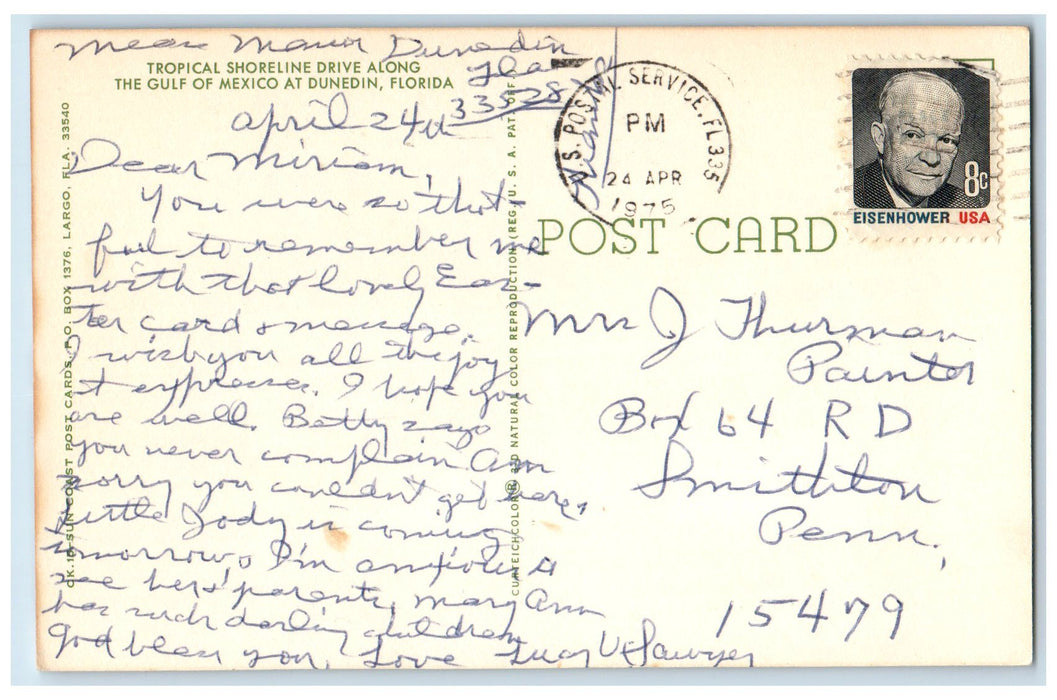 Mear Manor Dunedin
Fla
33528
TROPICAL SHORELINE DRIVE ALONG
THE GULF OF MEXICO AT DUNEDIN, FLORIDA
April 24th
Dear Miriam,
You were so that-
ful to remember me
with that lovely Eas-
ter card & message.
I wish you all the joy
it expresses. I hope you
are well. Betty says
you never complain Am
sorry you couldn't get here.
Little Jody is coming
tomorrow. I'm anxious to
see her & parents, Mary Ann
has such darling children
God bless you, Love Lucy V Sawyer
CK.15-SUN COAST POST CARDS, P.O. BOX 1376, LARGO, FLA. 33540
CURTEICHCOLOR® 3-D NATURAL COLOR REPRODUCTION (REG. U. S. A. PAT. OFF.
U.S. POSTAL SERVICE, FL 335
PM
24 APR
1975
8c
EISENHOWER USA
POST CARD
Mrs J Thurman
Painter
Box 64 R D
Smithton
Penn.,
15479